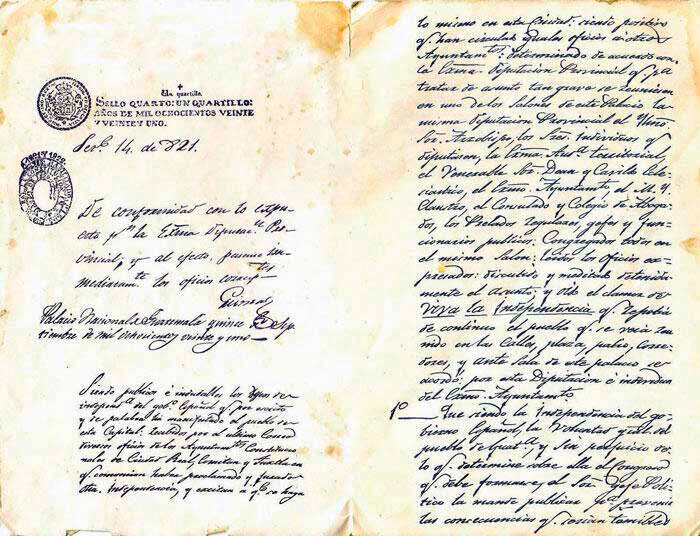 Un quartillo.
SELLO QUARTO: UN QUARTILLO:
AÑOS DE MIL OCHOCIENTOS VEINTE
Y VEINTE Y UNO.
14. de 821.
De conformidad con lo espu-
esta pr. la Exma Diputac.n Pro-
vincial, y al efecto,
los oficios
Palacio Nacional de Guatemala, quince de Sep-
tiembre de mil ochocientos veinte y uno
Siendo publicos é indudables los deseos de
independ.a del gob.o Español q. por escrito
y de palabra ha manifestado el pueblo de
esta Capital: recibidos por el ultimo Correo
diversos oficios de los Ayuntam.tos Constitucio-
nales de Ciudad Real, Comitan y Tuxtla en
q. comunican haber proclamado y jurado
dha. Independencia, y excitan a q. se haga
lo mismo en esta Ciudad: siendo positivo
q. han circulado iguales oficios a otros
Ayuntam.tos: determinado de acuerdo con
la Exma. Diputacion Provincial q. pa.
tratar de asunto tan grave se reuniesen
en uno de los Salones de este Palacio la
misma Diputacion Provincial el Illmo
Sor. Arzobispo, los Sres. Individuos q.
diputasen, la Exma. Aud.a territorial,
el Venerable Sor. Dean y Cavildo Ecle-
siastico, el Exmo. Ayuntam.to, el M. Y.
Claustro, el Consulado y Colegio de Aboga-
dos, los Prelados regulares, gefes y fun-
cionarios publicos: Congregados todos en
el mismo Salon: leidos los oficios ex-
presados: discutido y meditado detenida-
mente el asunto; y oido el clamor de
VIVA la Independencia q. repetia
de continuo el pueblo q. se veia reu-
nido en las Calles, plaza, patio, corre-
dores, y ante sala de este palacio se
acordó: por esta Diputacion é individuos
del Exmo. Ayuntam.to
1o Que siendo la Independencia del go-
bierno Español, la Voluntad gral. del
pueblo de Guat.a, y sin perjuicio de
lo q. determine sobre ella el Congreso
q. debe formarse, el Sor. gefe Poli-
tico la mande publicar pa. prevenir
las consecuencias q. serian temibles